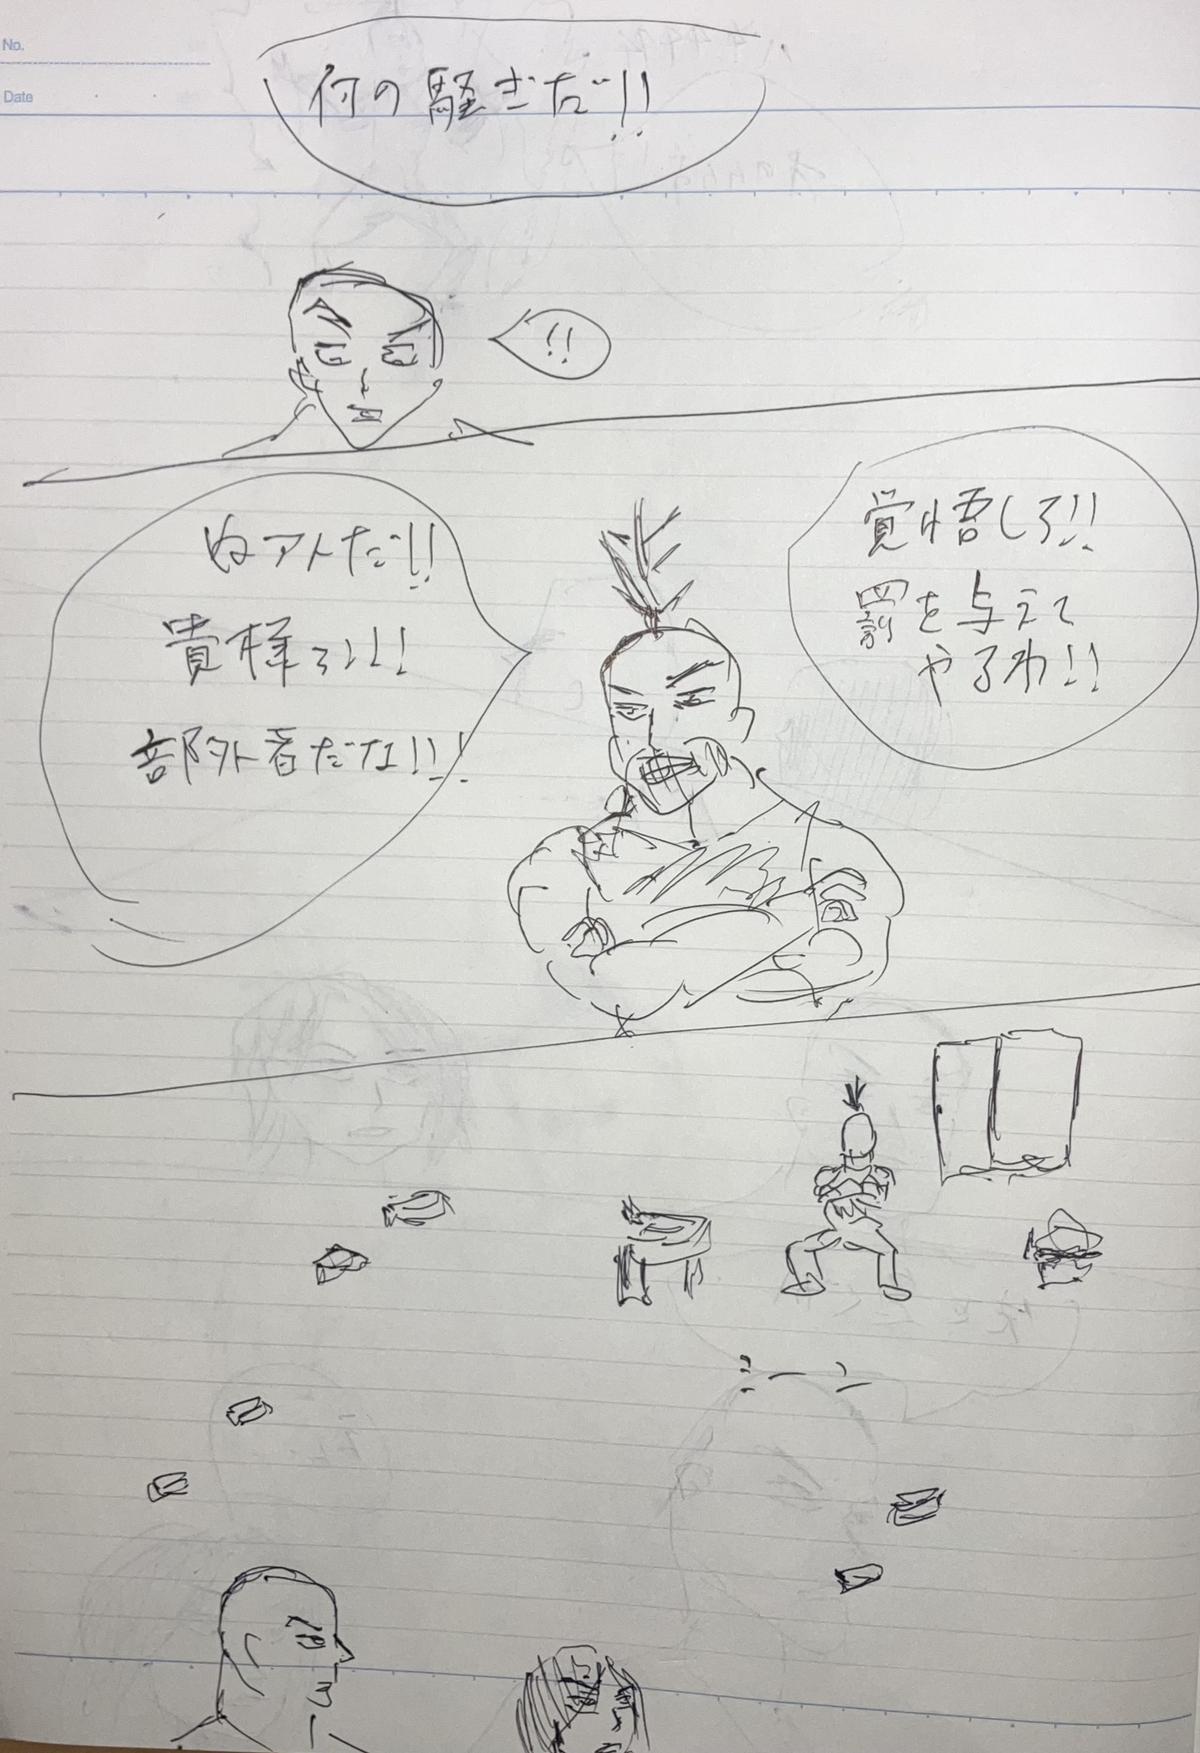 No.
Date
何の騒ぎだ!!
!!
覚悟しろ!!
罰を与えて
やるわ!!
貴様ラ!!!
部外者だな!!!
シーン